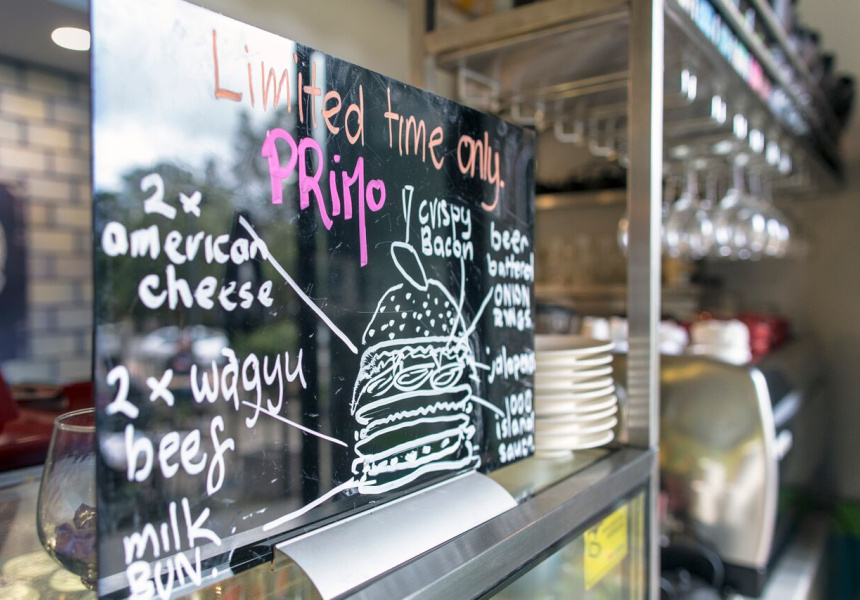 Limited time only.
PRiMo
2x
american
cheese
2 x wagyu
beef
milk
BUN.
crispy
Bacon
beer
battered
ONION
RINGS
jalapeno
1000
island
sauce